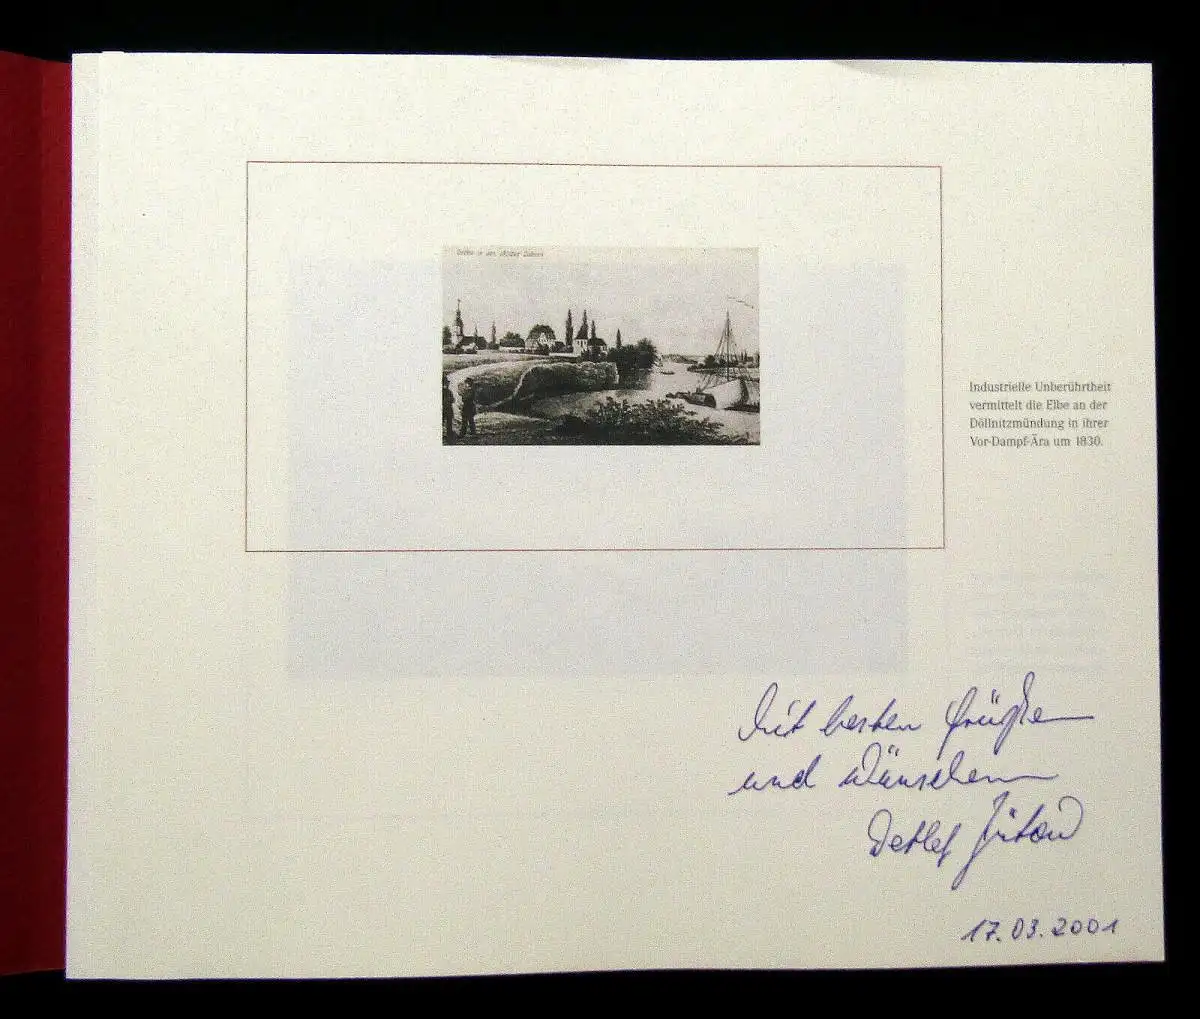 Industrielle Unberührtheit
vermittelt die Elbe an der
Döllnitzmündung in ihrer
Vor-Dampf-Ära um 1830.
Mit besten Grüßen
und Wünschen
Detlef
17.03.2001